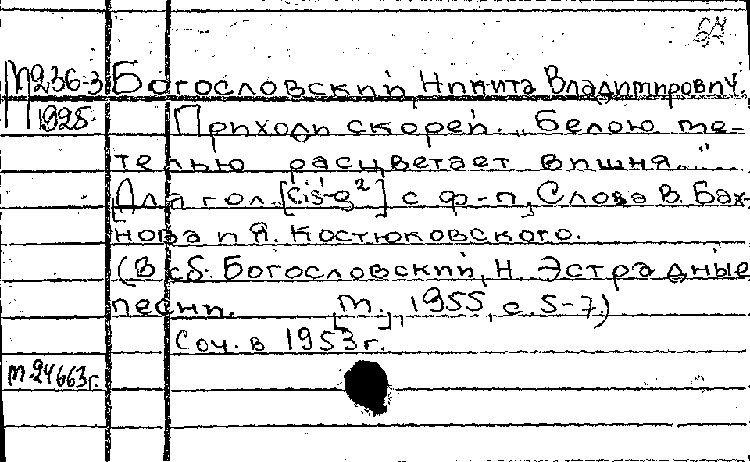 67
М236-3 Богословский, Никита Владимирович.
1928 Приходи скорей. „Белою ме-
телью расцветает вишня..."
Для гол. [cis¹-g²] с ф-п, Слова В. Бах-
нова и Я. Костюковского.
(В сб. Богословский, Н. Эстрадные
песни. [М.], 1955, с. 5-7)
Соч. в 1953 г.
М-24663г.